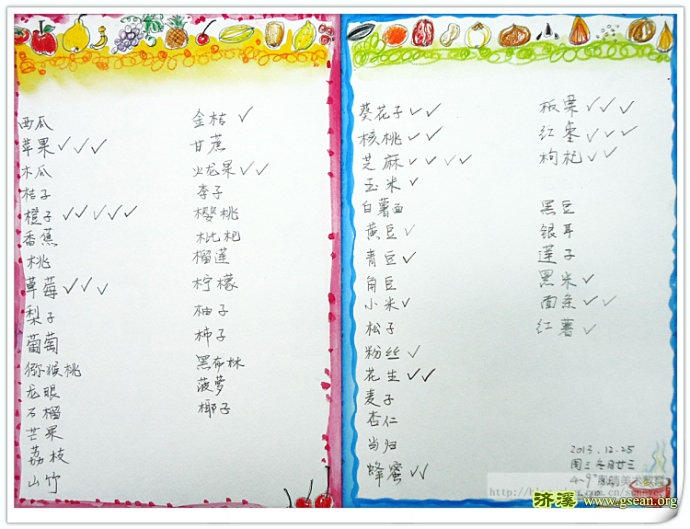 西瓜
苹果✓✓✓
木瓜
桔子
橙子✓✓✓✓✓
香蕉
桃
草莓✓✓✓
梨子
葡萄
猕猴桃
龙眼
石榴
芒果
荔枝
山竹
金桔✓
甘蔗
火龙果✓✓
李子
樱桃
枇杷
榴莲
柠檬
柚子
柿子
黑布林
菠萝
椰子
葵花子✓✓
核桃✓✓
芝麻✓✓✓✓
玉米✓
白薯面
黄豆✓
青豆✓
角豆
小米✓
松子
粉丝✓
花生✓✓
麦子
杏仁
当归
蜂蜜✓✓
板栗✓✓✓
红枣✓✓✓
枸杞✓✓
黑豆
银耳
莲子
黑米✓
面条✓✓
红薯✓
2013.12.25
周三 冬月廿三
济溪 www.gsean.org